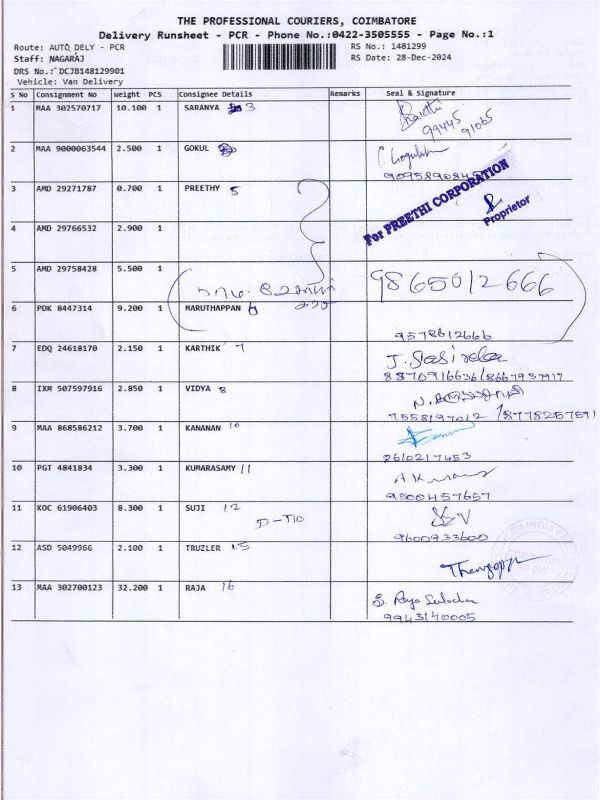 THE PROFESSIONAL COURIERS, COIMBATORE
Delivery Runsheet - PCR - Phone No.:0422-3505555 - Page No.:1
Route: AUTO DELY - PCR
RS No.: 1481299
Staff: NAGARAJ
RS Date: 28-Dec-2024
DRS No.: DCJB148129901
Vehicle: Van Delivery
S No Consignment No Weight PCS Consignee Details Remarks Seal & Signature
1 MAA 302570717 10.100 1 SARANYA 3
99445 91065
2 MAA 9000063544 2.500 1 GOKUL
3 AMD 29271787 0.700 1 PREETHY 5
For PREETHI CORPORATION
Proprietor
4 AMD 29766532 2.900 1
5 AMD 29758428 5.500 1
9865012666
6 PDK 8447314 9.200 1 MARUTHAPPAN 6
9578612666
7 EDQ 24618170 2.150 1 KARTHIK 7
J. Sasireka
8 IXM 507597916 2.850 1 VIDYA 8
7558197012 / 8778257591
9 MAA 868586212 3.700 1 KANANAN 10
2610217453
10 PGT 4841834 3.300 1 KUMARASAMY 11
9500457657
11 KOC 61906403 8.300 1 SUJI 12
D-T10
9600933600
12 ASD 5049966 2.100 1 TRUZLER 15
13 MAA 302700123 32.200 1 RAJA 16
9943140005